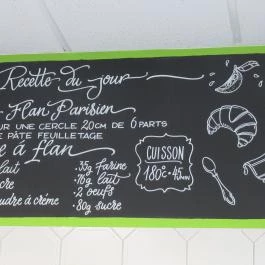 Recette du jour
Flan Parisien
UR UNE CERCLE 20CM DE 6 PARTS
PÂTE FEUILLETAGE
à flan
lait
.35g farine
.76g lait
.2 oeufs
udre à crème
.80g sucre
CUISSON
180°c - 45min